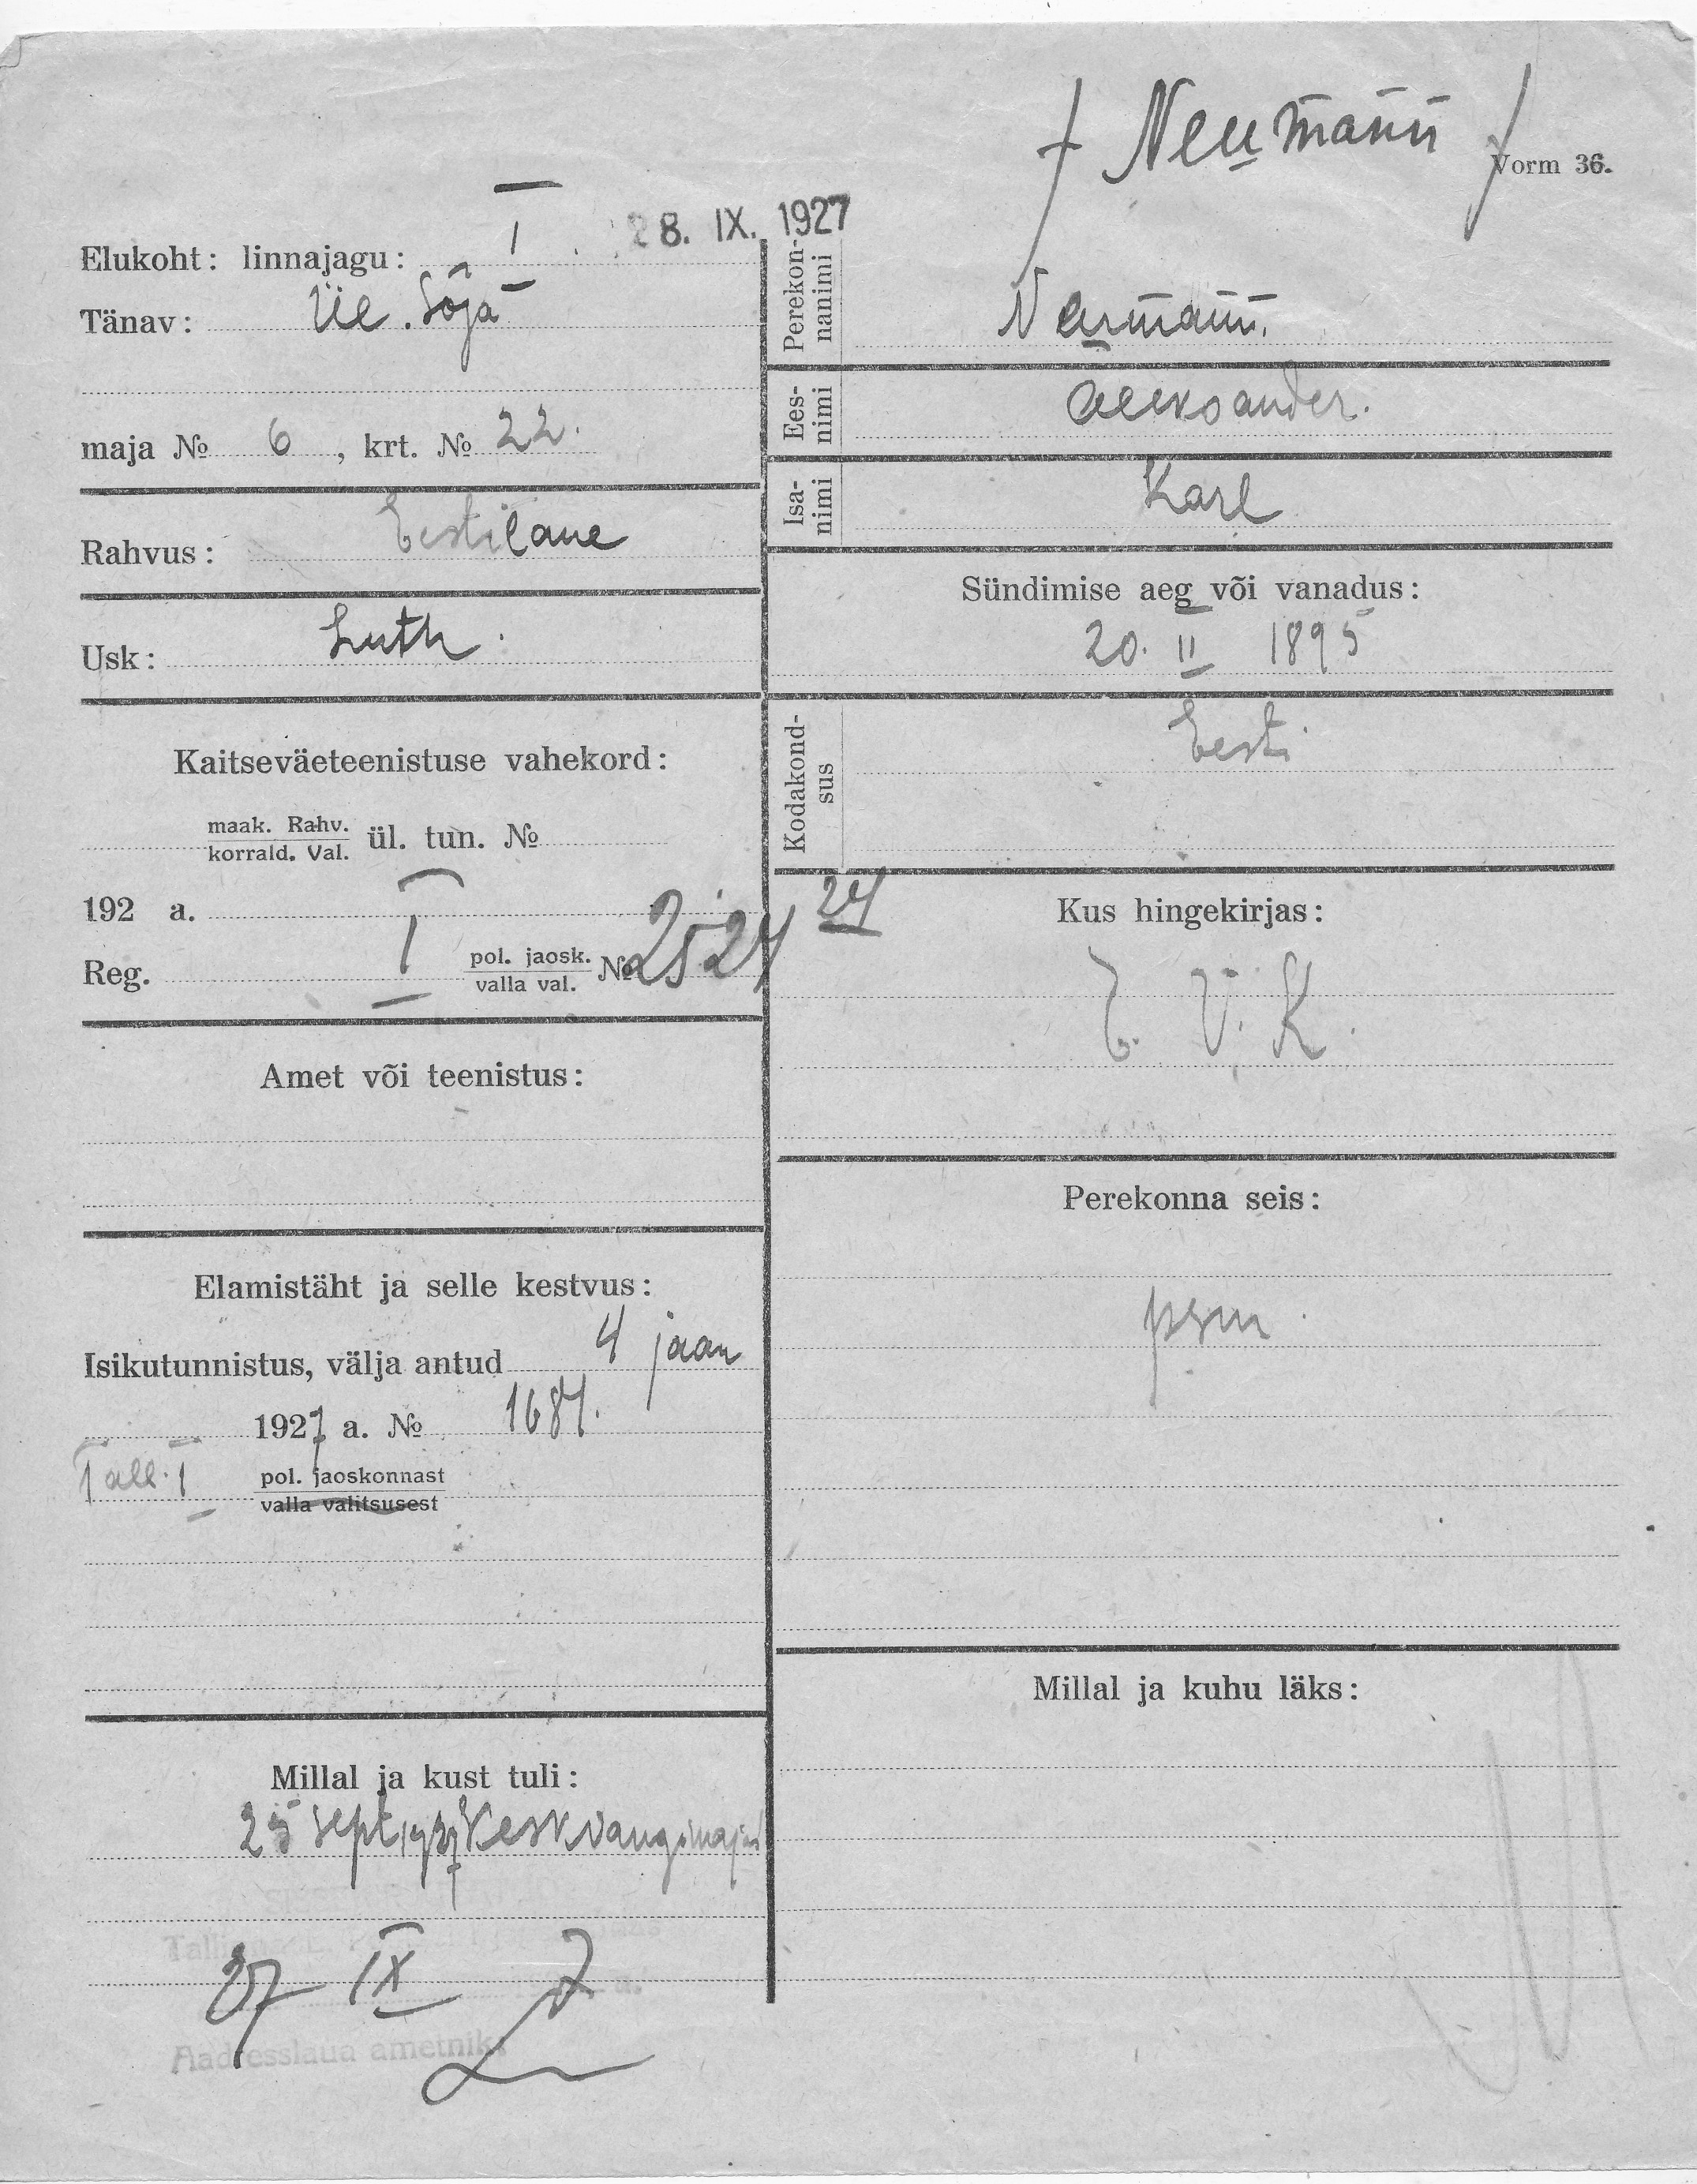 Neumann
Vorm 36.
28. IX. 1927
Elukoht: linnajagu: I
Tänav: Üe. Sõja
maja № 6, krt. № 22.
Rahvus: Eestilane
Usk: Luth.
Kaitseväeteenistuse vahekord:
maak. Rahv.
korrald. Val.
ül. tun. №
192 a.
Reg. I pol. jaosk. № 2524
valla val.
24
Amet või teenistus:
Elamistäht ja selle kestvus:
Isikutunnistus, välja antud 4 jaan
1927 a. № 1684.
Tall. I pol. jaoskonnast
valla valitsusest
Millal ja kust tuli:
25 sept 1927 Keskvangimajast
27 IX
Tallinna
Aadresslaua ametnik
Perekon-
nanimi
Neumann.
Ees-
nimi
Aleksander.
Isa-
nimi
Karl
Sündimise aeg või vanadus:
20. II 1895
Kodakond-
sus
Eesti
Kus hingekirjas:
E. V. K.
Perekonna seis:
Millal ja kuhu läks: